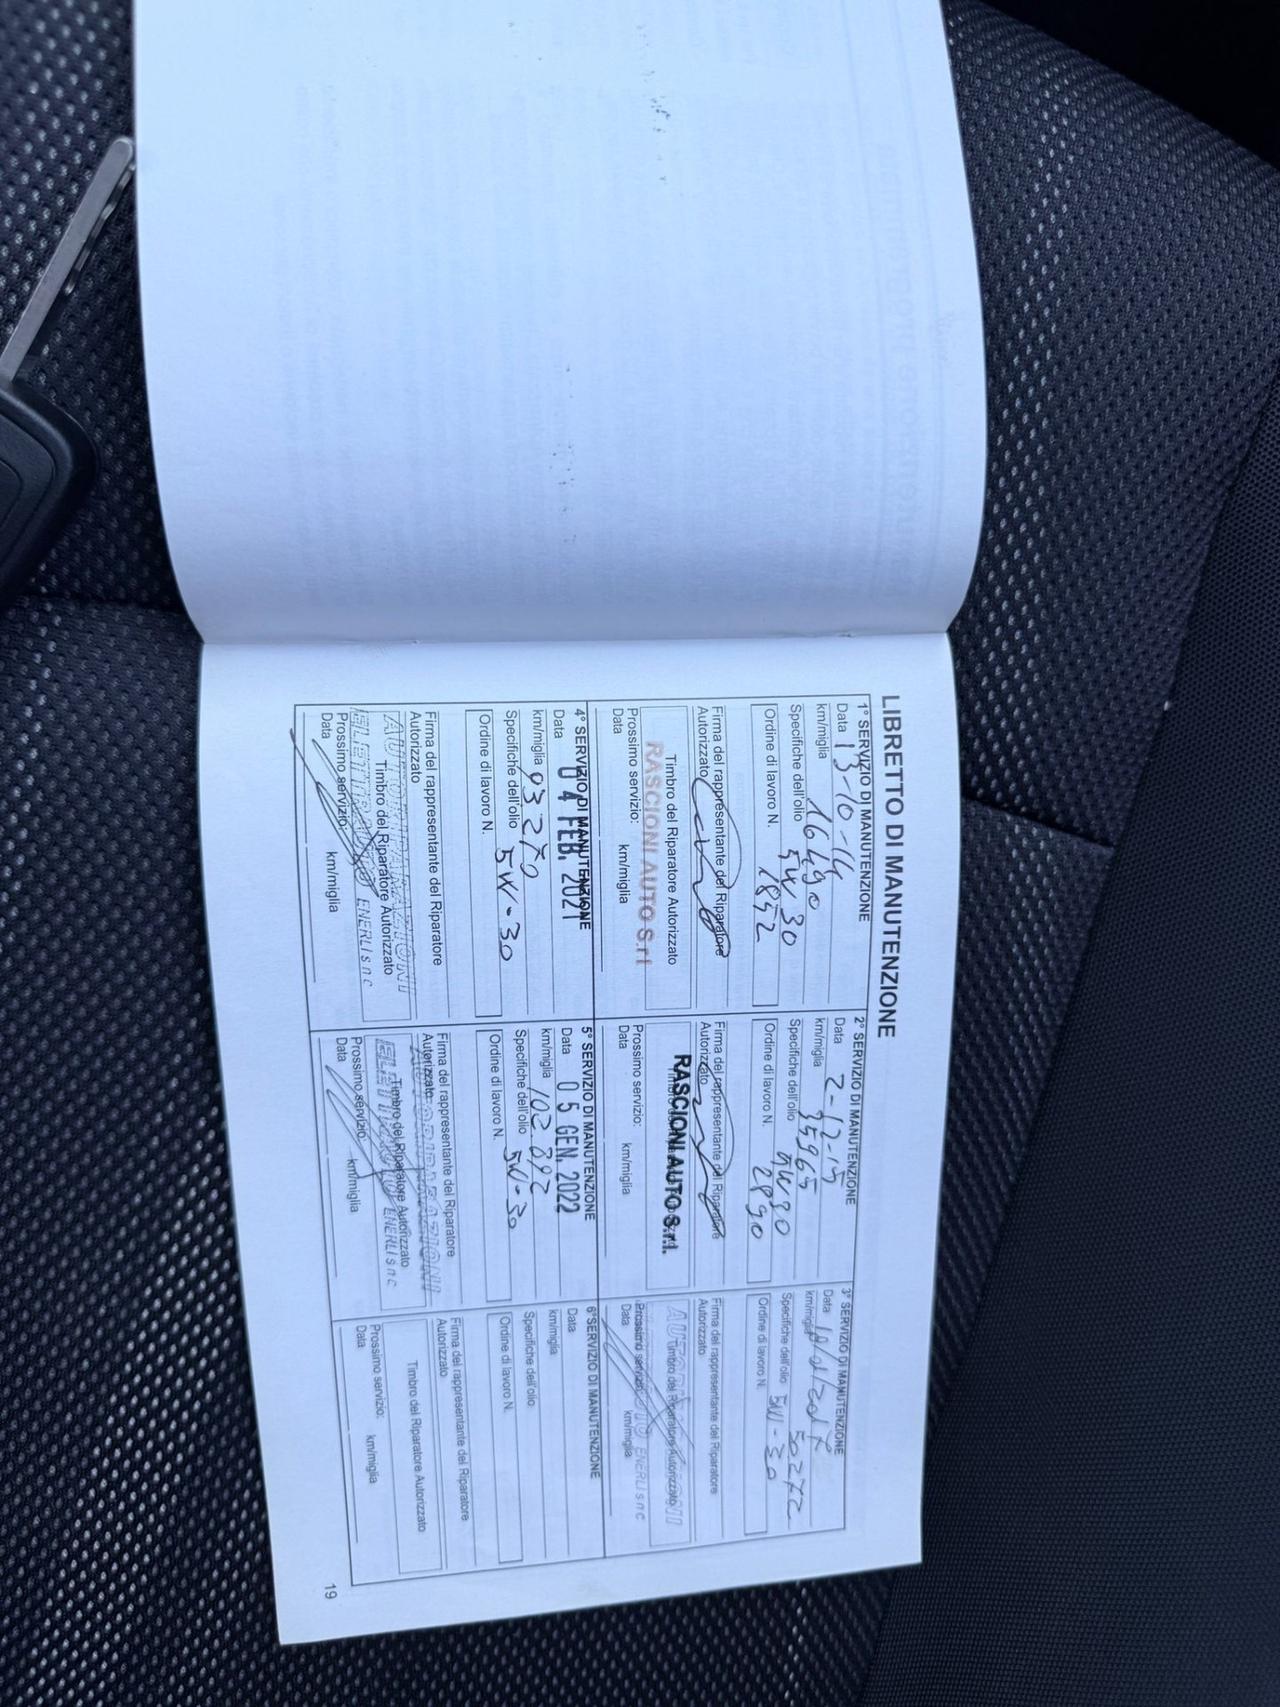 LIBRETTO DI MANUTENZIONE
1° SERVIZIO DI MANUTENZIONE
Data 13-10-14
km/miglia 16490
Specifiche dell'olio 5W30
Ordine di lavoro N. 1852
Firma del rappresentante del Riparatore
Autorizzato
Timbro del Riparatore Autorizzato
RASCIONI AUTO S.r.l
Prossimo servizio:
Data km/miglia
2° SERVIZIO DI MANUTENZIONE
Data 2-12-15
km/miglia 35965
Specifiche dell'olio 5W30
Ordine di lavoro N. 2890
Firma del rappresentante del Riparatore
Autorizzato
RASCIONI AUTO S.r.l.
Prossimo servizio:
Data km/miglia
3° SERVIZIO DI MANUTENZIONE
Data
km/miglia 50272
Specifiche dell'olio 5W-30
Ordine di lavoro N.
Firma del rappresentante del Riparatore
Autorizzato
Timbro del Riparatore Autorizzato
ENERLI snc
Prossimo servizio:
Data km/miglia
4° SERVIZIO DI MANUTENZIONE
Data 04 FEB. 2021
km/miglia 93270
Specifiche dell'olio 5W-30
Ordine di lavoro N.
Firma del rappresentante del Riparatore
Autorizzato
AUTORIPARAZIONI
Timbro del Riparatore Autorizzato
ELETTRAUTO ENERLI snc
Prossimo servizio:
Data km/miglia
5° SERVIZIO DI MANUTENZIONE
Data 05 GEN. 2022
km/miglia 102892
Specifiche dell'olio 5W-30
Ordine di lavoro N.
Firma del rappresentante del Riparatore
Autorizzato
AUTORIPARAZIONI
Timbro del Riparatore Autorizzato
ELETTRAUTO ENERLI snc
Prossimo servizio:
Data km/miglia
6° SERVIZIO DI MANUTENZIONE
Data
km/miglia
Specifiche dell'olio
Ordine di lavoro N.
Firma del rappresentante del Riparatore
Autorizzato
Timbro del Riparatore Autorizzato
Prossimo servizio:
Data km/miglia
19